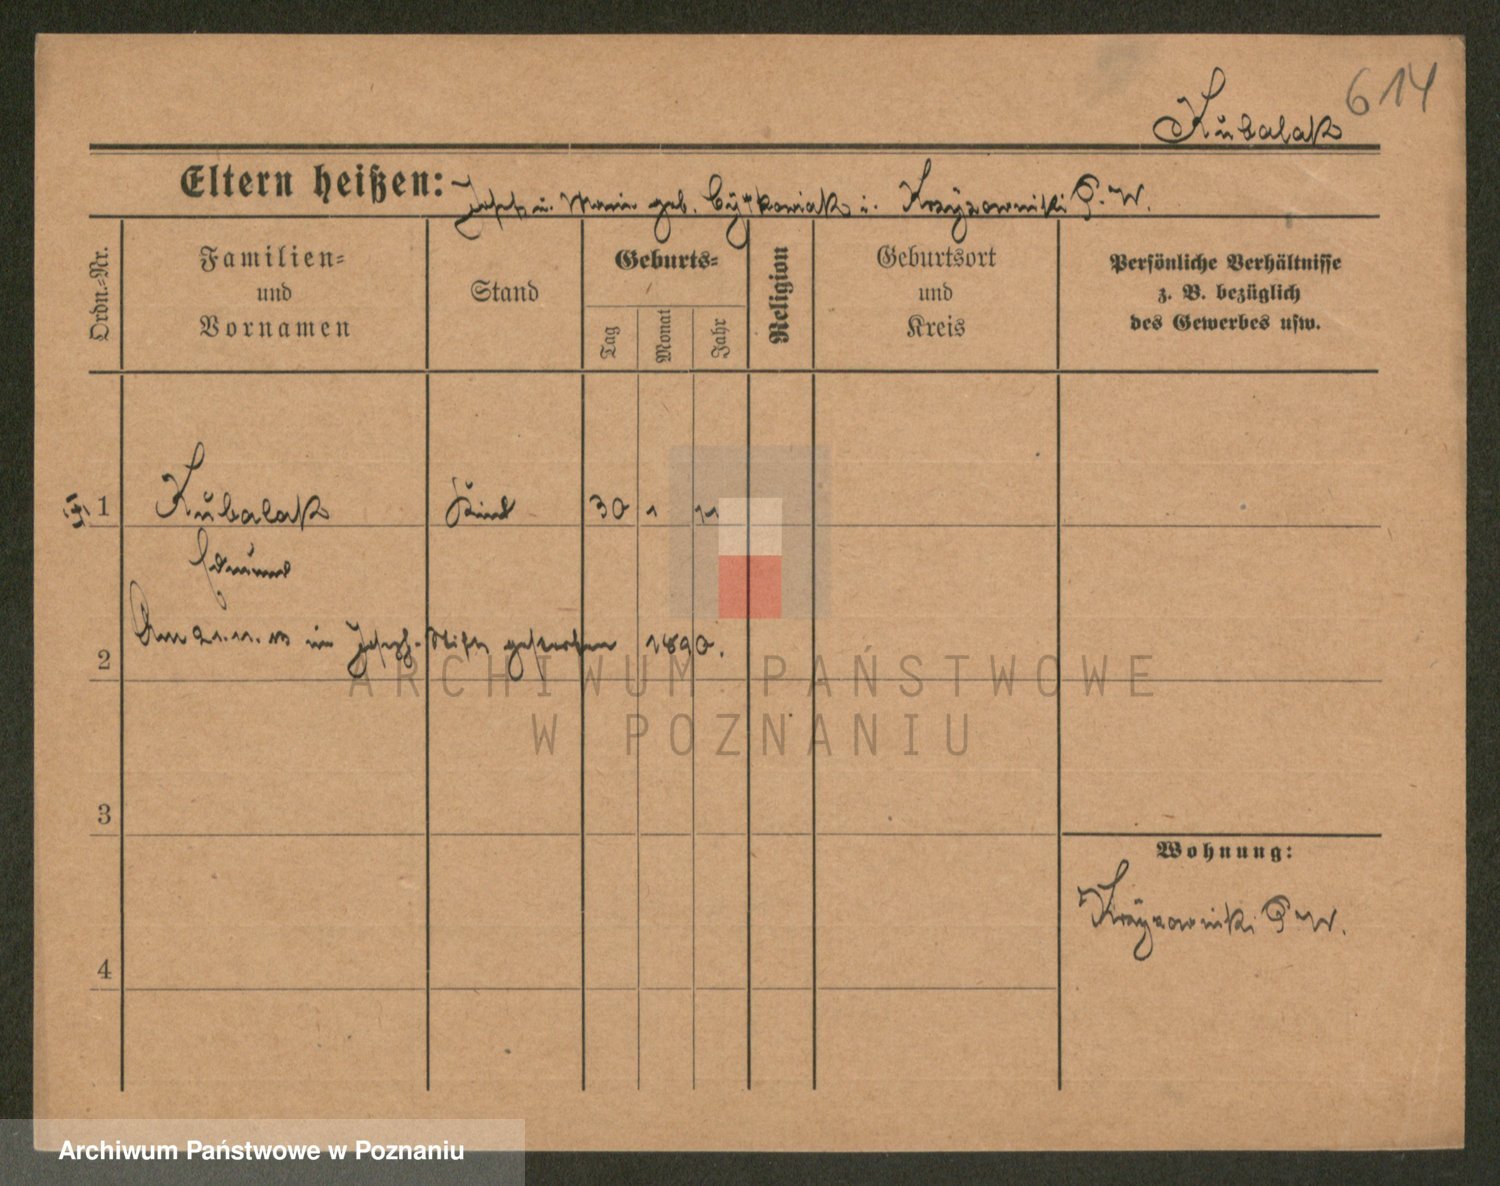 614
Kubalak
Eltern heißen: Joseph u. Maria geb. i. Krzyzowniki P. W.
Ordn.-Nr.
Familien-
und
Vornamen
Stand
Geburts-
Tag
Monat
Jahr
Religion
Geburtsort
und
Kreis
Persönliche Verhältnisse
z. B. bezüglich
des Gewerbes usw.
1 Kubalak Kind 30 1 11
Edmund
Am 21. 11. 13 im Joseph-Stift gestorben 1890.
2
ARCHIWUM PAŃSTWOWE
W POZNANIU
3
Wohnung:
Krzyzowniki P. W.
4
Archiwum Państwowe w Poznaniu